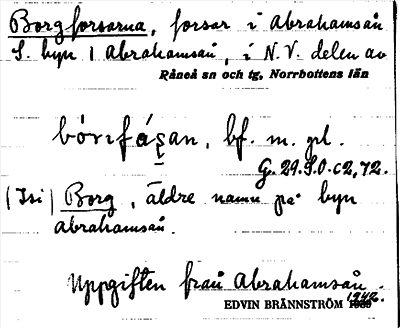 Borgforsarna, forsar i Abrahamsån
S. byn i Abrahamsån, i N.V. delen av
Råneå sn och tg, Norrbottens län
bf. m. pl.
G. 29.S.0-62,72.
Borg, äldre namn på byn
Abrahamsån.
Uppgiften från Abrahamsån.
EDVIN BRÄNNSTRÖM 1942.